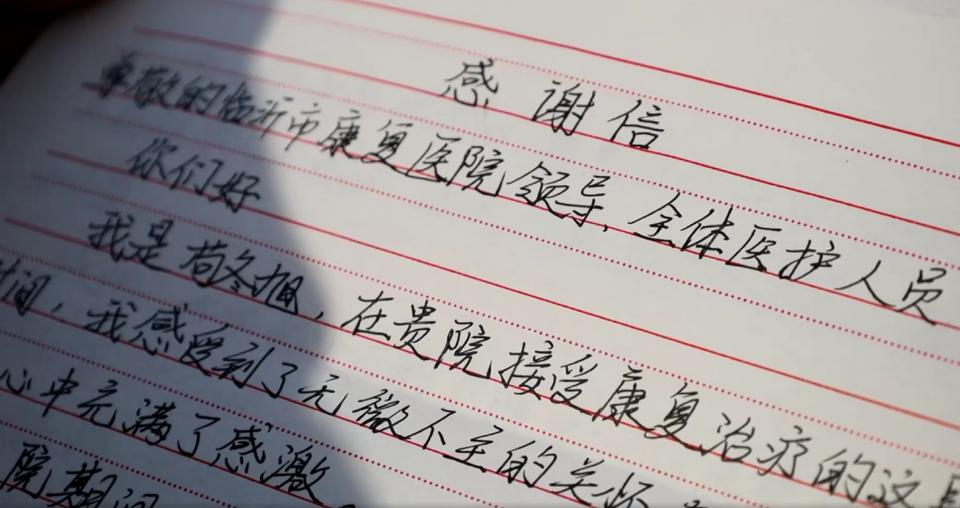 感谢信
尊敬的临沂市康复医院领导、全体医护人员
你们好
我是苟冬旭，在贵院接受康复治疗的这
时间，我感受到了无微不至的关怀
心中充满了感激
院期间